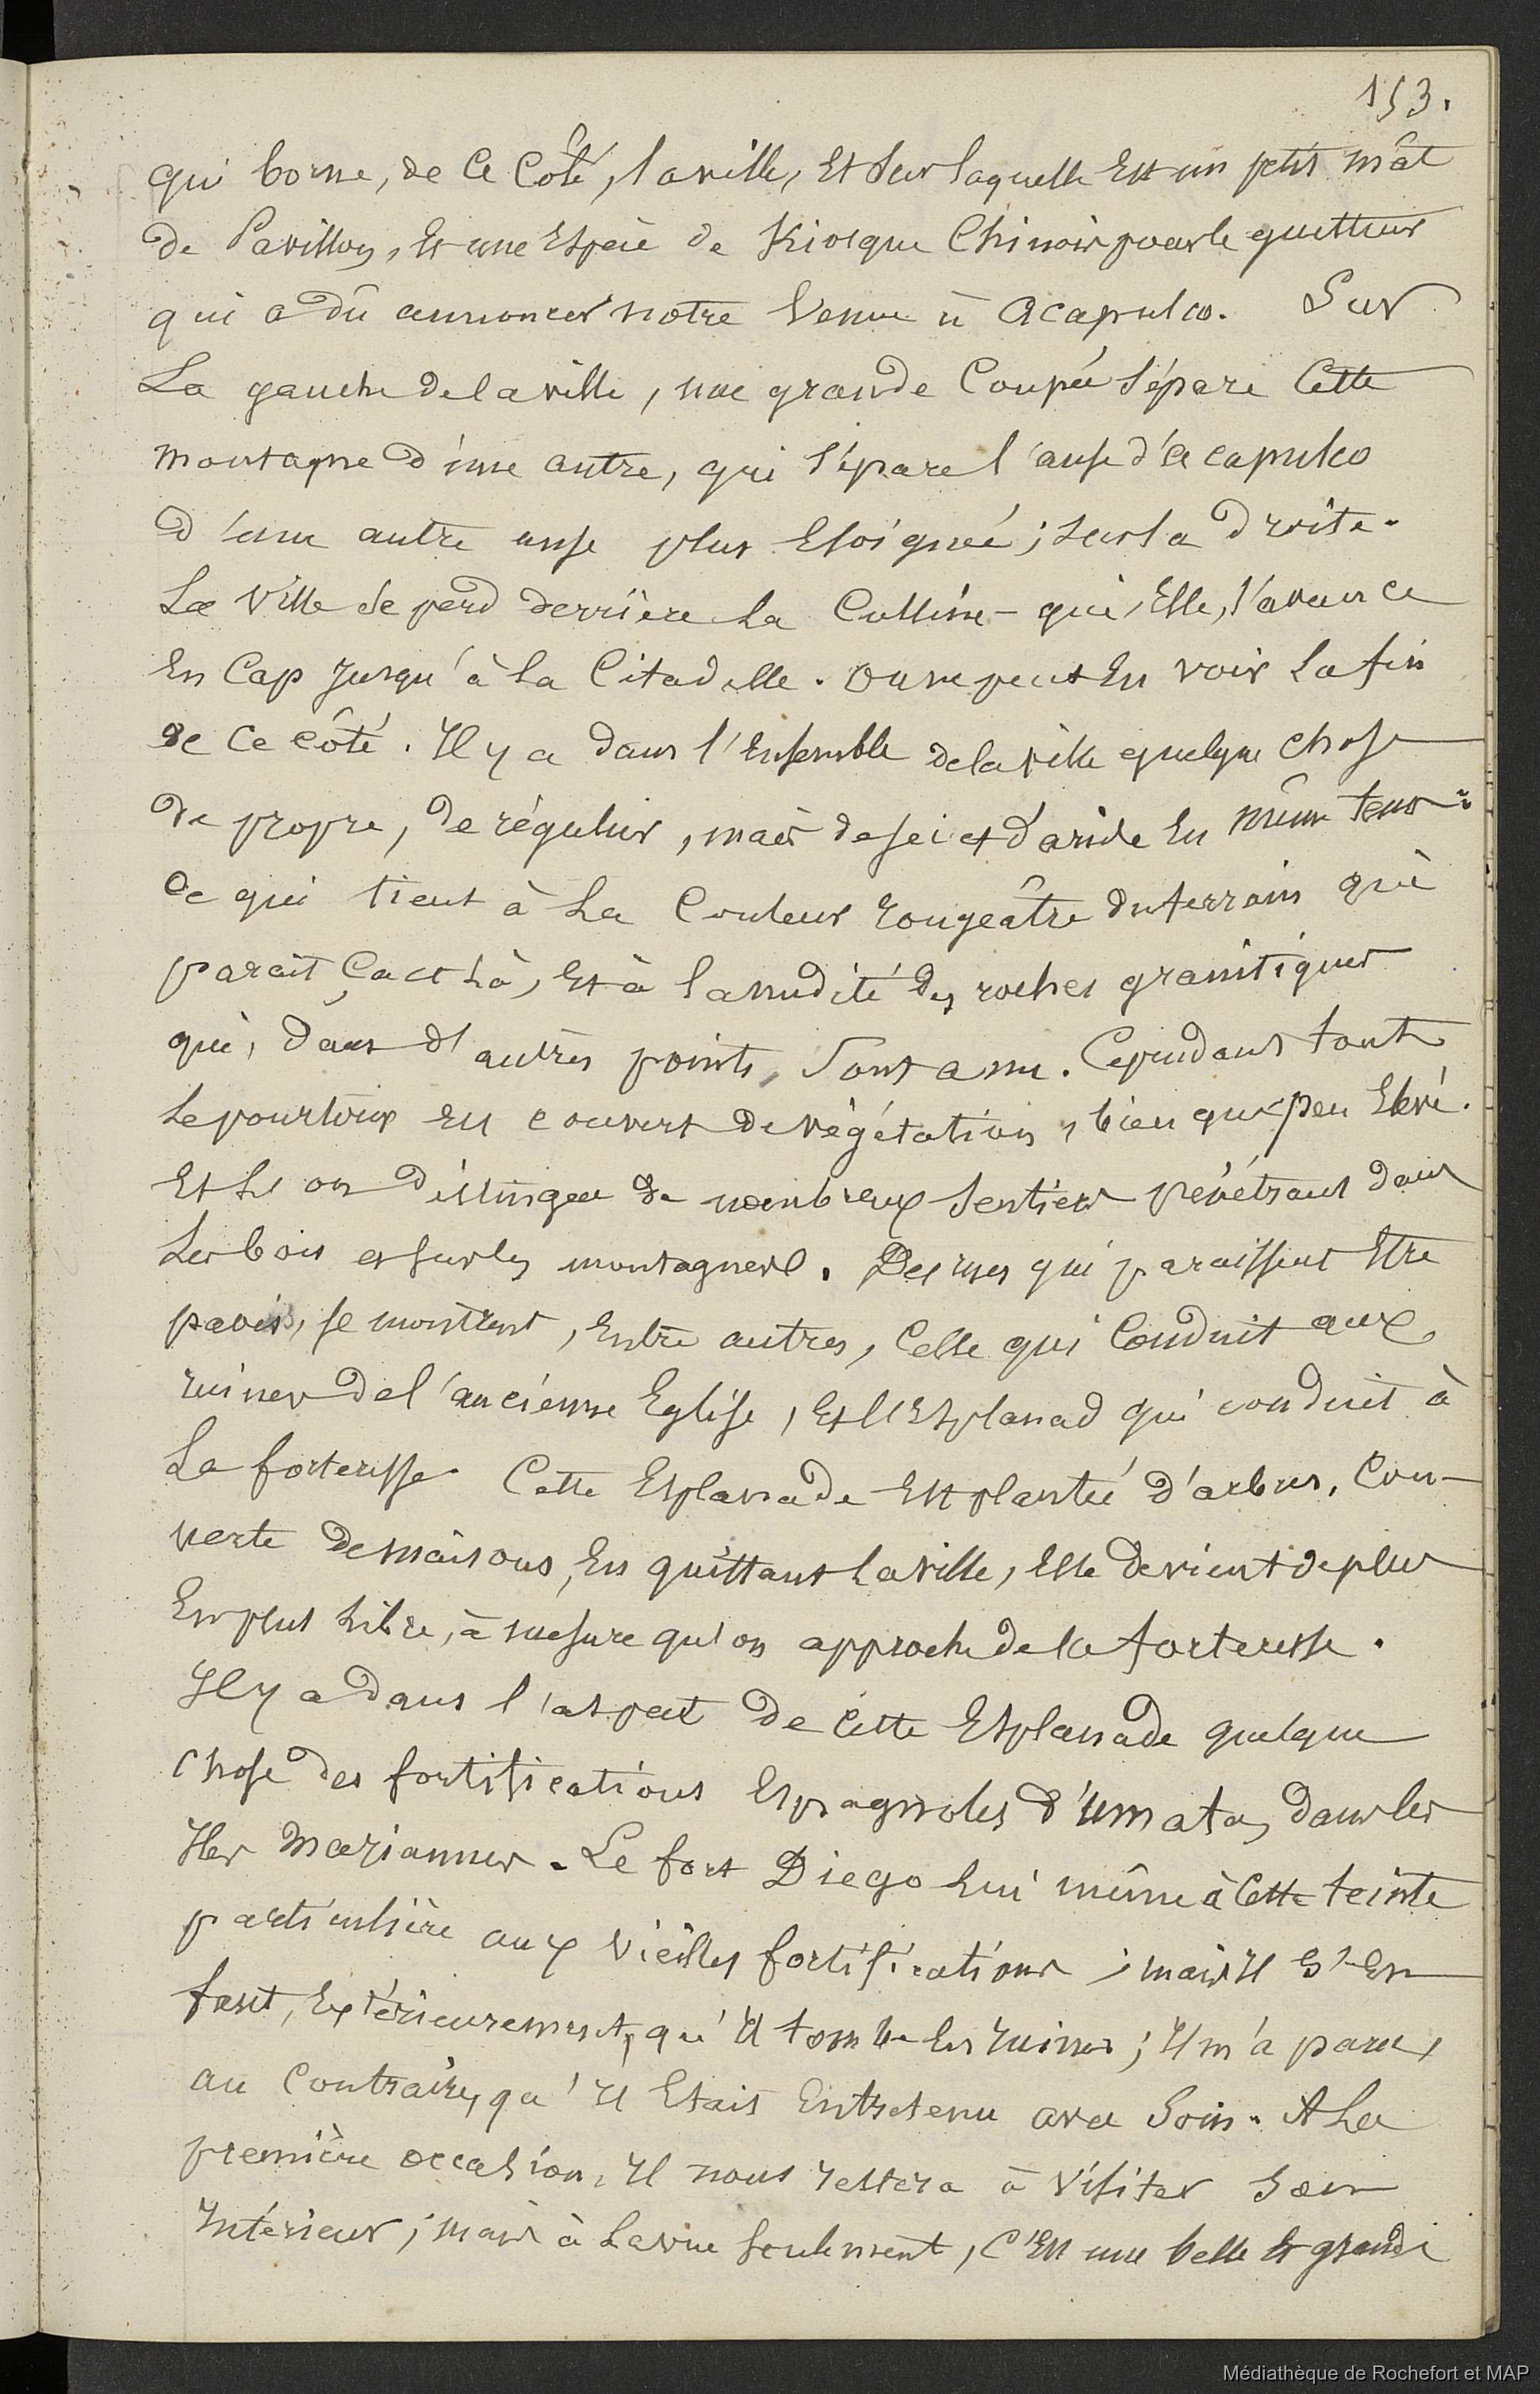 153.
qui borne, de ce côté, la ville, et sur laquelle est un petit mât
de Pavillon, et une Espèce de Kiosque Chinois pour le guetteur
qui a dû annoncer notre Venue à Acapulco. Sur
La gauche de la ville, une grande Coupée sépare Cette
montagne d'une autre, qui sépare l'anse d'Acapulco
d'une autre anse plus Eloignée; sur la droite.
La Ville se perd derrière la Colline qui, Elle, s'avance
En Cap Jusqu'à la Citadelle. on ne peut En voir la fin
de ce côté. Il y a dans l'Ensemble de la ville quelque chose
de propre, de régulier, mais de sec et d'aride En même tems
Ce qui tient à la Couleur rougeâtre du terrain qui
parait Ça et Là, Et à la nudité des roches granitiques
qui, dans d'autres points, sont à nu. Cependant tout
le pourtour est couvert de végétation, bien que peu Elevé.
Et L'on distingue de nombreux sentiers pénétrant dans
les bois et sur les montagnes. Des rues qui paraissent Etre
pavés, se montrent, Entre autres, Celle qui Conduit aux
ruines de l'ancienne Eglise, Et l'Esplanad qui conduit à
La forteresse. Cette Esplanade Est plantée d'arbres, Cou-
verte de maisons, En quittant la ville, Elle devient de plus
En plus libre, à mesure qu'on approche de la forteresse.
Il y a dans l'aspect de cette Esplanade quelque
Chose des fortifications Espagnoles d'Umata, dans les
Iles Mariannes. Le fort Diego lui même à Cette teinte
particulière aux vieilles fortifications; mais Il s'En
faut, Extérieurement, qu'Il tombe En ruines; Il m'a paru,
au Contraire, qu'Il Etait Entretenu avec Soin. A La
première occasion, Il nous restera à visiter son
Intérieur; mais à La vue seulement, C'Est une belle Et grande
Médiathèque de Rochefort et MAP